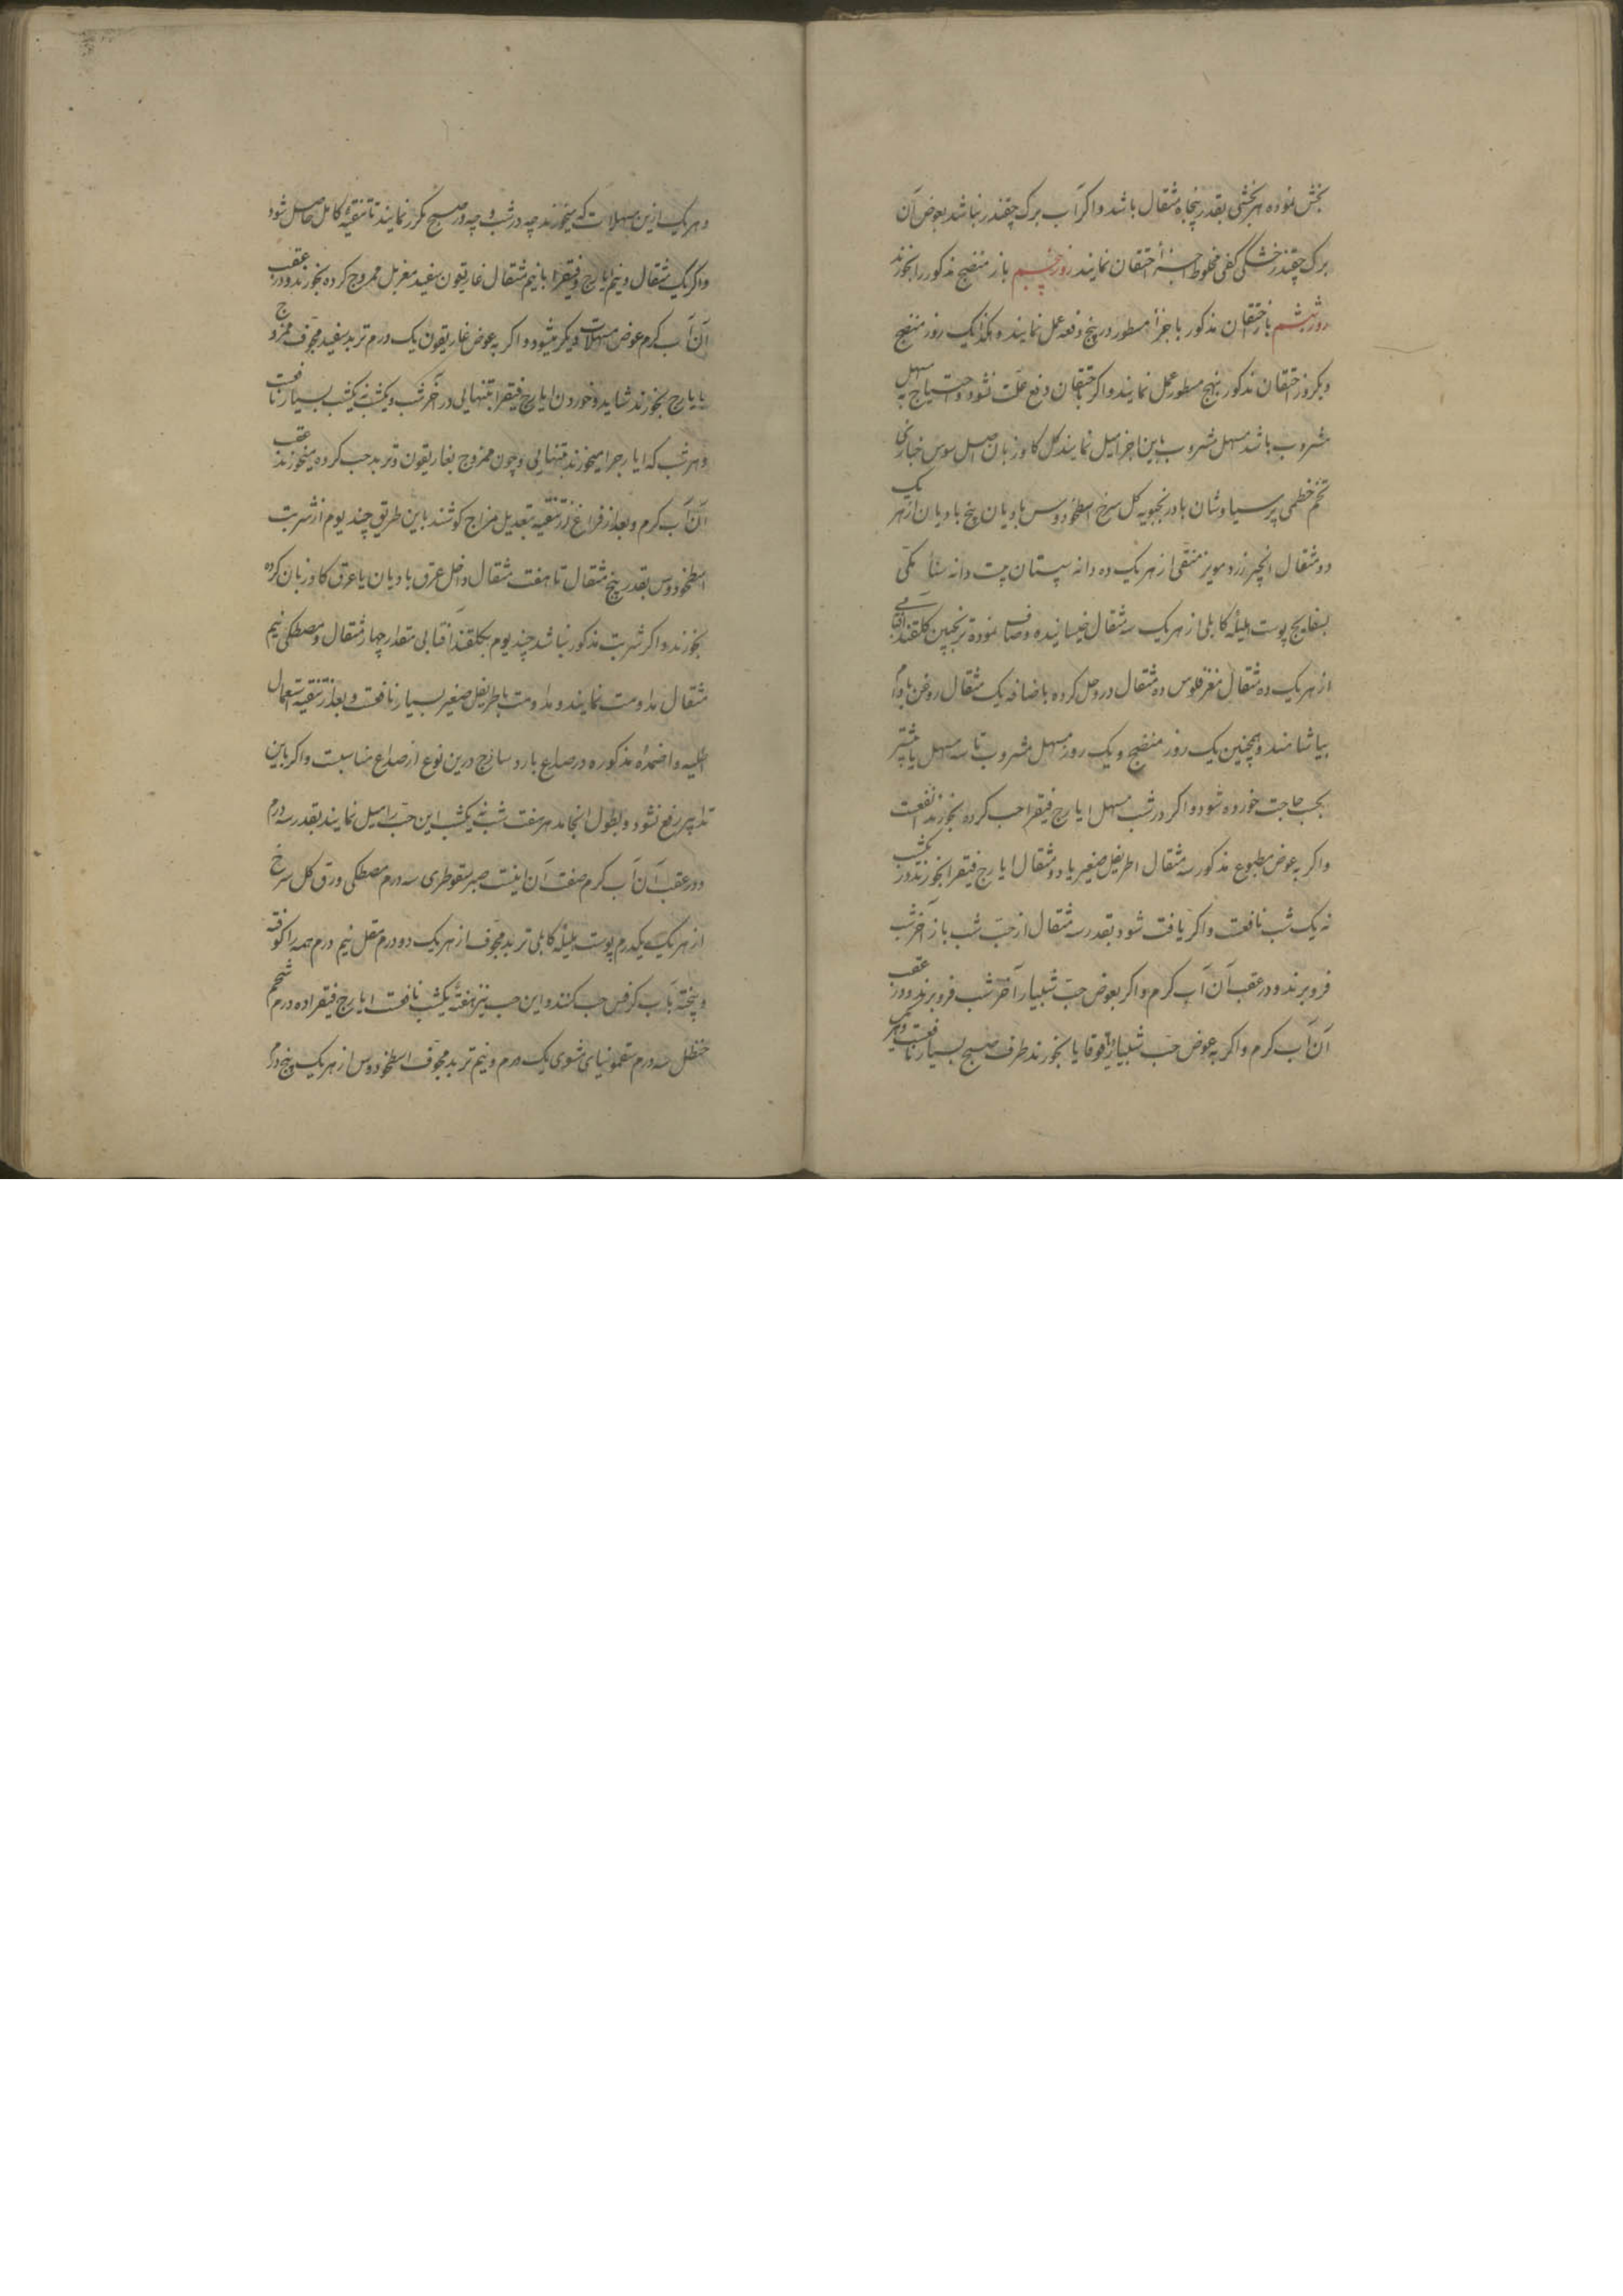 بخش نموده هر بخشی بقدر پنجاه مثقال باشد و اکر آب برک چقندر نباشد بعوض آن
برک چقندر خشک کفی مخلوط اجزا احتقان نمایند روز پنجم باز منضج مذکور را بخورند
روز ششم باز احتقان مذکور با جزأ مسطور در پنج دفعه عمل نمایند و هکذا یک روز منضج
و یکروز احتقان مذکور بنهج مسطور عمل نمایند و اکر باحتقان دفع علت نشود و احتیاج به مسهل
مشروب باشد مسهل مشروب باین اجزا میل نمایند کل کاوزبان اصل سوس خبازی
تخم خطمی پرسیاوشان بادرنجبویه کل سرخ اسطوخودوس بادیان بیخ بادیان از هر یک
دو مثقال انجیر زرد مویز منقی از هر یک ده دانه سپستان بیست دانه سنا مکی
بسفایج پوست هلیلهٔ کابلی از هر یک سه مثقال خیسانیده و صاف نموده ترنجبین کلقند آفتابی
از هر یک ده مثقال مغز فلوس ده مثقال در و حل کرده باضافه یک مثقال روغن بادام
بیاشامند و همچنین یک روز منضج و یک روز مسهل مشروب تا سه مسهل یا بیشتر
بحسب حاجت خورده شود و اکر در شب مسهل ایارج فیقرا حب کرده بخورند انفعست
و اکر به عوض مطبوع مذکور سه مثقال اطریفل صغیر با دو مثقال ایارج فیقرا بخورند در یکشب
نه یک شب نافعست و اکر یافت شود بقدر سه مثقال از حب شب باز آخر شب
فرو برند و در عقب آن آب کرم و اکر بعوض حب شبیار آخر شب فرو برند و در عقب
آن آب کرم و اکر به عوض حب شبیار قوقایا بخورند طرف صبح بسیار نافعست
و هر یک ازین مسهلات که میخورند چه در شب و چه در صبح مکرر نمایند تا تنقیهٔ کامل حاصل شود
و اکر یک مثقال و نیم ایارج فیقرا با نیم مثقال غاریقون سفید مغربل ممزوج کرده بخورند و در عقب
آن آب کرم عوض مسهلات دیکر میشود و اکر به عوض غاریقون یک درم تربد سفید مجوف ممزوج
با یارج بخورند شاید و خوردن ایارج فیقرا بتنهایی در آخر شب و یکشب نه یکشب بسیار نافعست
و هر شب که ایارجرا میخورند بتنهایی و چون ممزوج بغاریقون و تربد حب کرده میخورند عقب
آن آب کرم و بعد از فراغ از تنقیه بتعدیل مزاج کوشند باین طریق چند یوم از شربت
اسطوخودوس بقدر پنج مثقال تا هفت مثقال داخل عرق بادیان یا عرق کاوزبان کرده
بخورند و اکر شربت مذکور نباشد چند یوم بکلقند آفتابی مقدار چهار مثقال و مصطکی نیم
مثقال مداومت نمایند و مداومت باطریفل صغیر بسیار نافعست و بعد از تنقیه استعمال
اطلیه و اضمدهٔ مذکوره در صداع بارد ساذج درین نوع از صداع مناسبست و اکر باین
تدابیر رفع نشود و بطول انجامد هر هفت شب نه یکشب این حب را میل نمایند بقدر سه درم
و در عقب آن آب کرم صفت آن اینست صبر سقوطری سه درم مصطکی ورق کل سرخ
از هر یک یکدرم پوست هلیلهٔ کابلی تربد مجوف از هر یک دو درم مقل نیم درم همه را کوفته
و بیخته بآب کرفس حب کنند و این حب نیز هفتهٔ یکشب نافعست ایارج فیقرا ده درم شحم
حنظل سه درم سقمونیای مشوی یک درم و نیم تربد مجوف اسطوخودوس از هر یک پنج درم